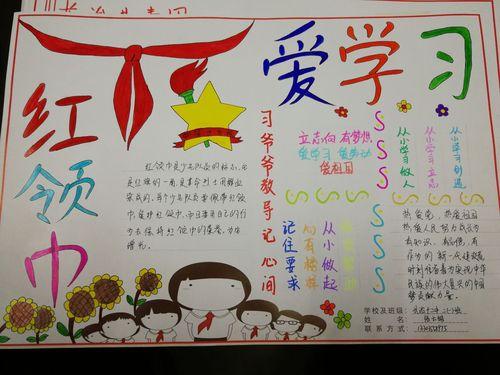 红领巾
爱学习
红领巾是少先队员的标志，它
是红旗的一角，是革命烈士用鲜血
染成的。每个少先队员要佩带红领
巾，爱护红领巾，而且要用自己的行
为去保持红领巾的荣誉，为它
增光。
习爷爷教导记心间
立志向 有梦想
爱学习 爱劳动
爱祖国
记住要求
心有榜样
从小做起
从小学习做人
从小学习立志
从小学习创造
热爱党，热爱祖国
热爱人民，努力成长为
有知识、有品德、有
作为的新一代建设者
时刻准备着为实现中华
民族的伟大复兴的中国
梦贡献力量。
学校及班级：
姓名：
联系方式：